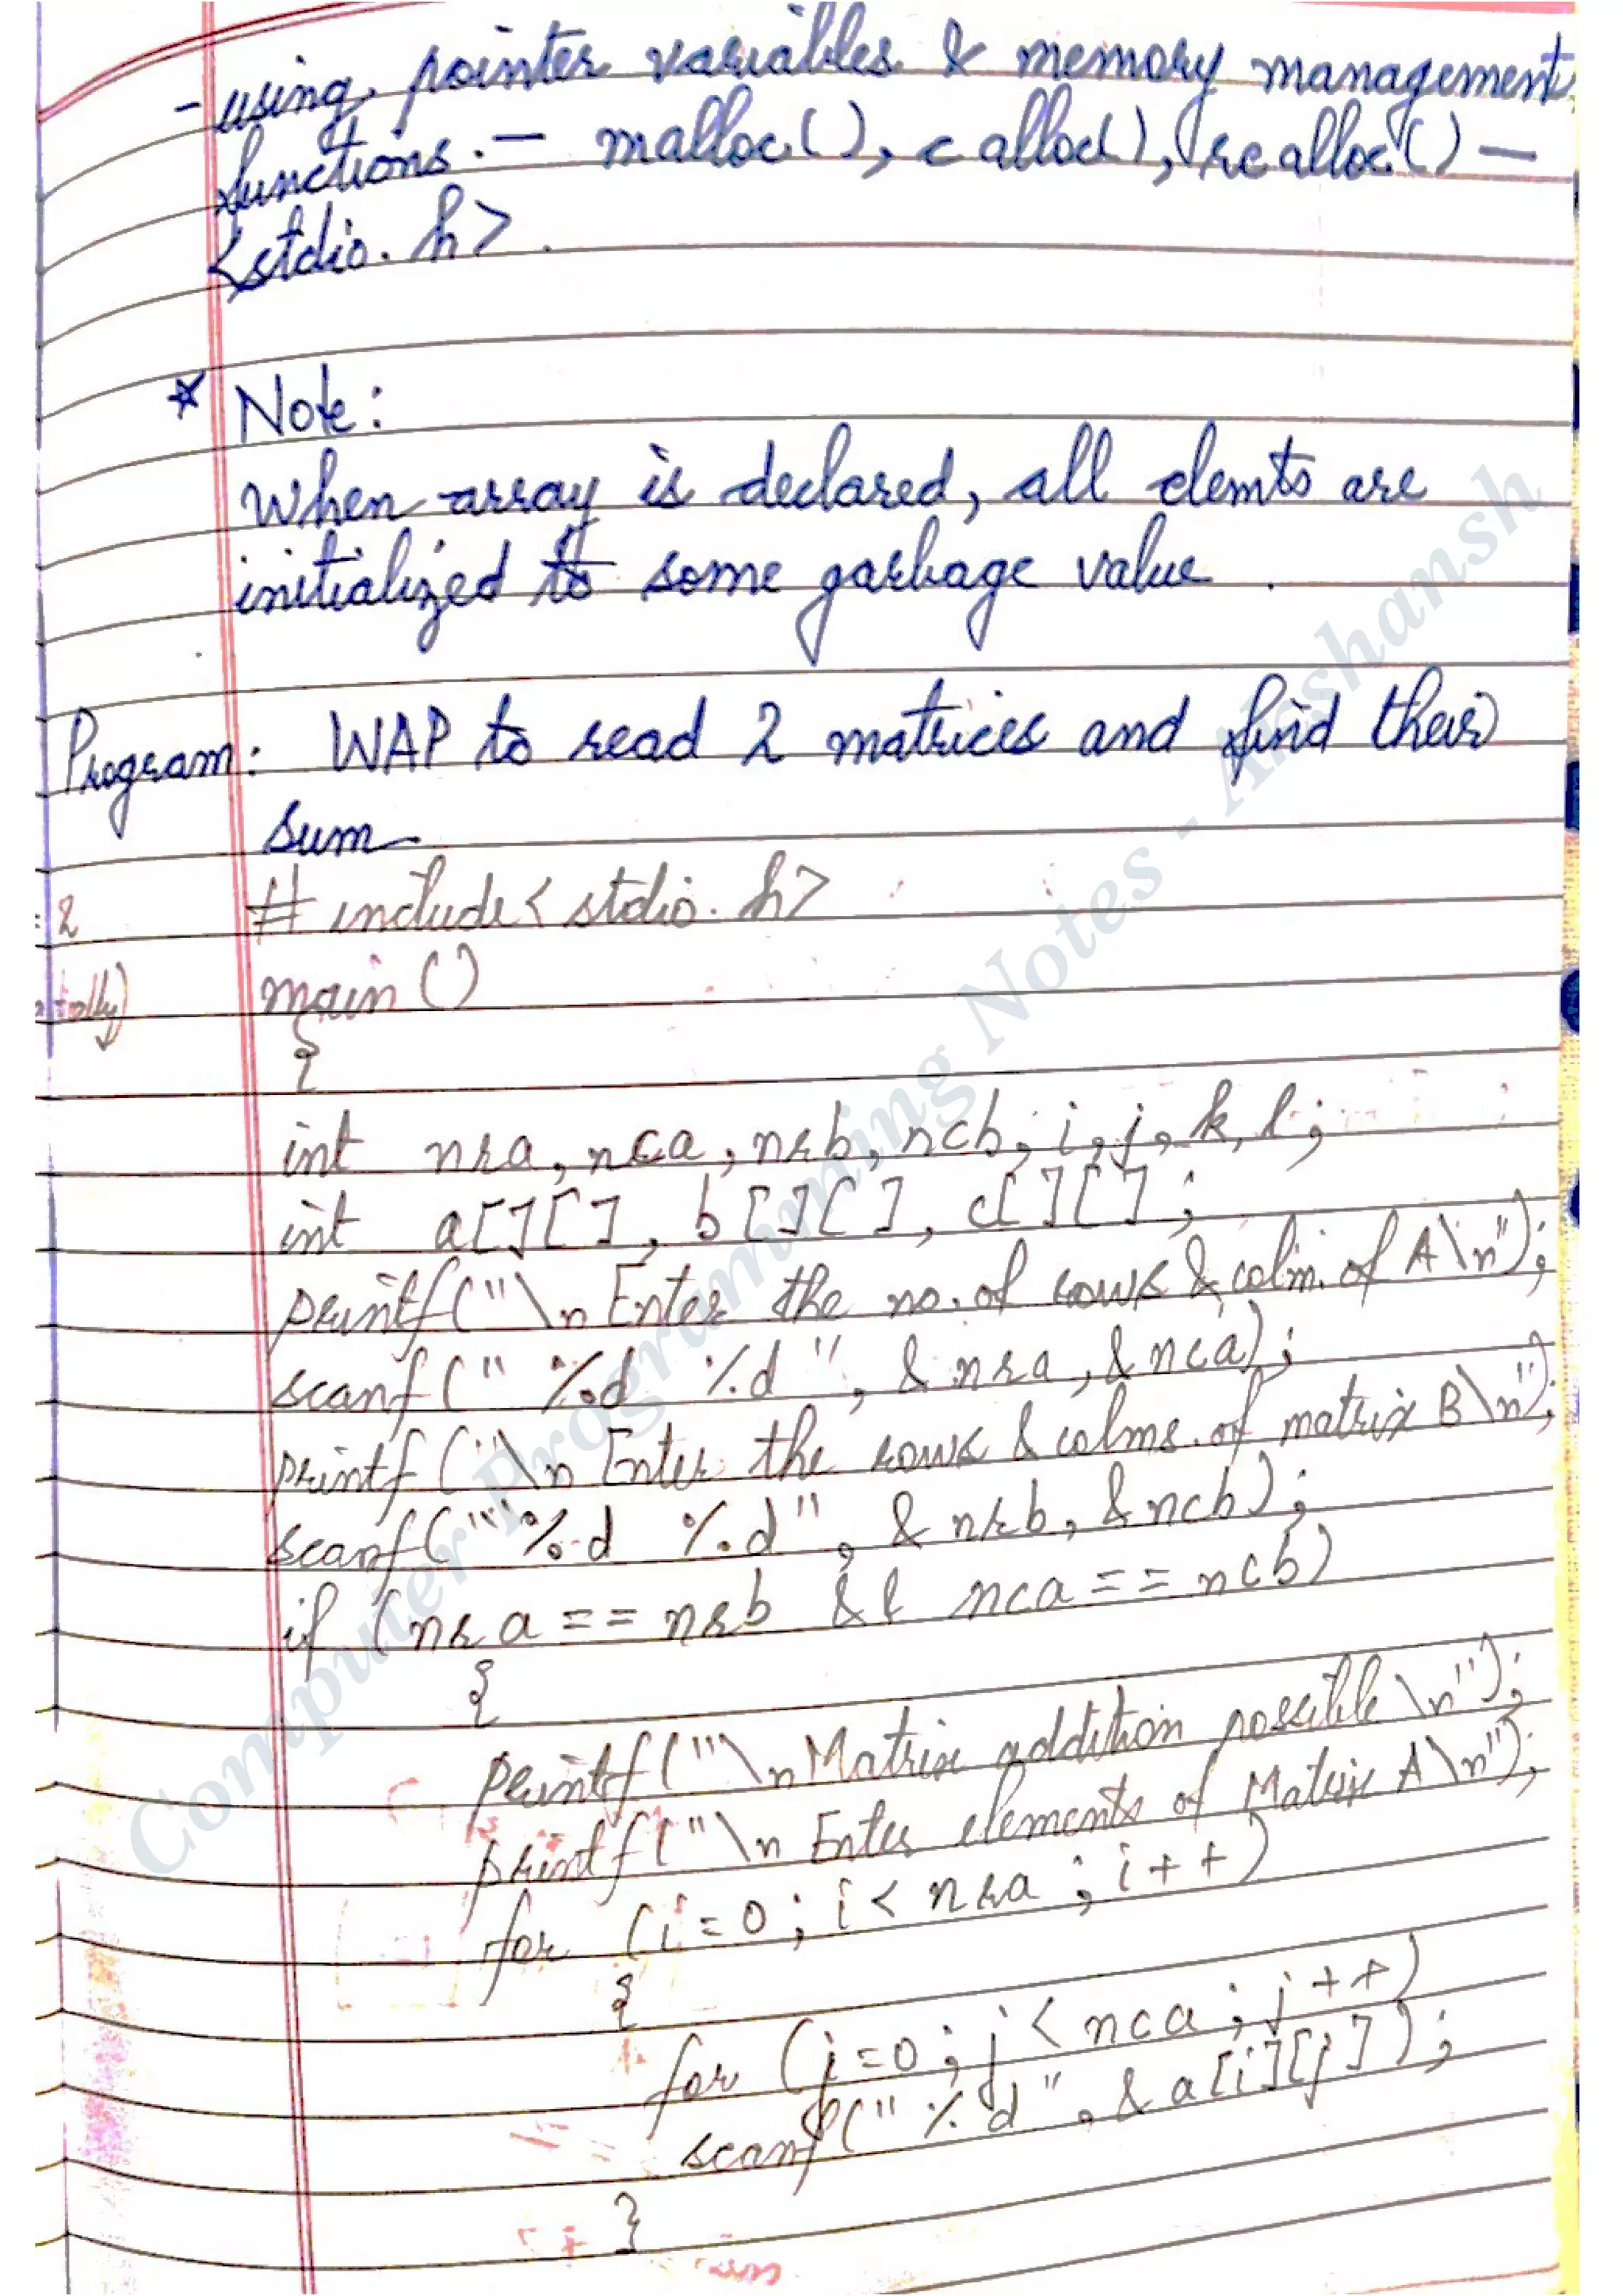 - using pointer variables & memory management
functions. — malloc(), calloc(), realloc() —
<stdio.h>.
* Note:
When array is declared, all elemts are
initialized to some garbage value.
Program: WAP to read 2 matrices and find their
sum
# include < stdio.h>
= 2
main ()
{
int nra, nca, nrb, ncb, i, j, k, l;
int a[][], b[][], c[][];
printf("\n Enter the no. of rows & colm. of A\n");
scanf(" %d %d ", &nra, &nca);
printf("\n Enter the rows & colms. of matrix B\n");
scanf("%d %d", &nrb, &ncb);
if (nra == nrb && nca == ncb)
{
printf("\nMatrix addition possible \n");
printf("\n Enter elements of Matrix A\n");
for (i=0; i< nra; i++)
{
for (j=0; j< nca; j++)
scanf("%d", &a[i][j]);
}
Computer Programming Notes - Akshansh